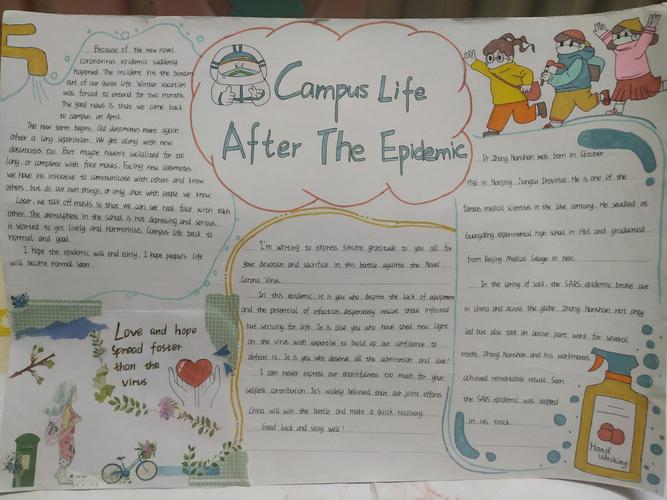 Campus Life
After The Epidemic
Because of the new novel
coronavirus epidemic suddenly
happened. The incident his the bottom
out of our quite life. Winter vacation
was forced to extend for two months.
The good news is that we came back
to campus on April.
The new term begins. Old classmates meet again
after a long separation. We get along with new
classmates too. But maybe haven't socialized for too
long, or complete with face masks. Facing new classmates
we have no initiative to communicate with others and know
others, but do our own things, or only chat with people we know.
Later, we took off masks so that we can see real face with each
other. The atmosphere in the school is not depressing and serious.
It started to get lively and harmonious. Campus life back to
normal and good.
I hope the epidemic will end early. I hope people's life
will become normal soon.
Love and hope
spread faster
than the
virus
I'm writing to express sincere gratitude to you all for
your devotion and sacrifice in this battle against the Novel
Corona Virus.
In this epidemic, it is you who, despite the lack of equipment
and the potential of infection desperately rescue those infected
but striving for life. It is also you who have shed new light
on the virus with expertise to build up our confidence to
defeat it. It is you who deserve all the admiration and love!
I can never express our thankfulness too much for your
selfless contribution. It's widely believed that our joint efforts
China will win the battle and make a quick recovery.
Good luck and stay well!
Dr Zhong Nanshan was born in October
1936 in Nanjing, Jiangsu Province. He is one of the
famous medical scientises in the 21st century. He studied at
Guangdong experimental high school in 1953 and graduated
from Beijing Medical College in 1960.
In the spring of 2003, the SARS epidemic broke out
in China and across the globe. Zhong Nanshan not only
led but also took an active part work for several
moths. Zhong Nanshan and his workmates
achieved remarkable result. Soon
the SARS epidemic was stopped
in its track.
Hand
Washing